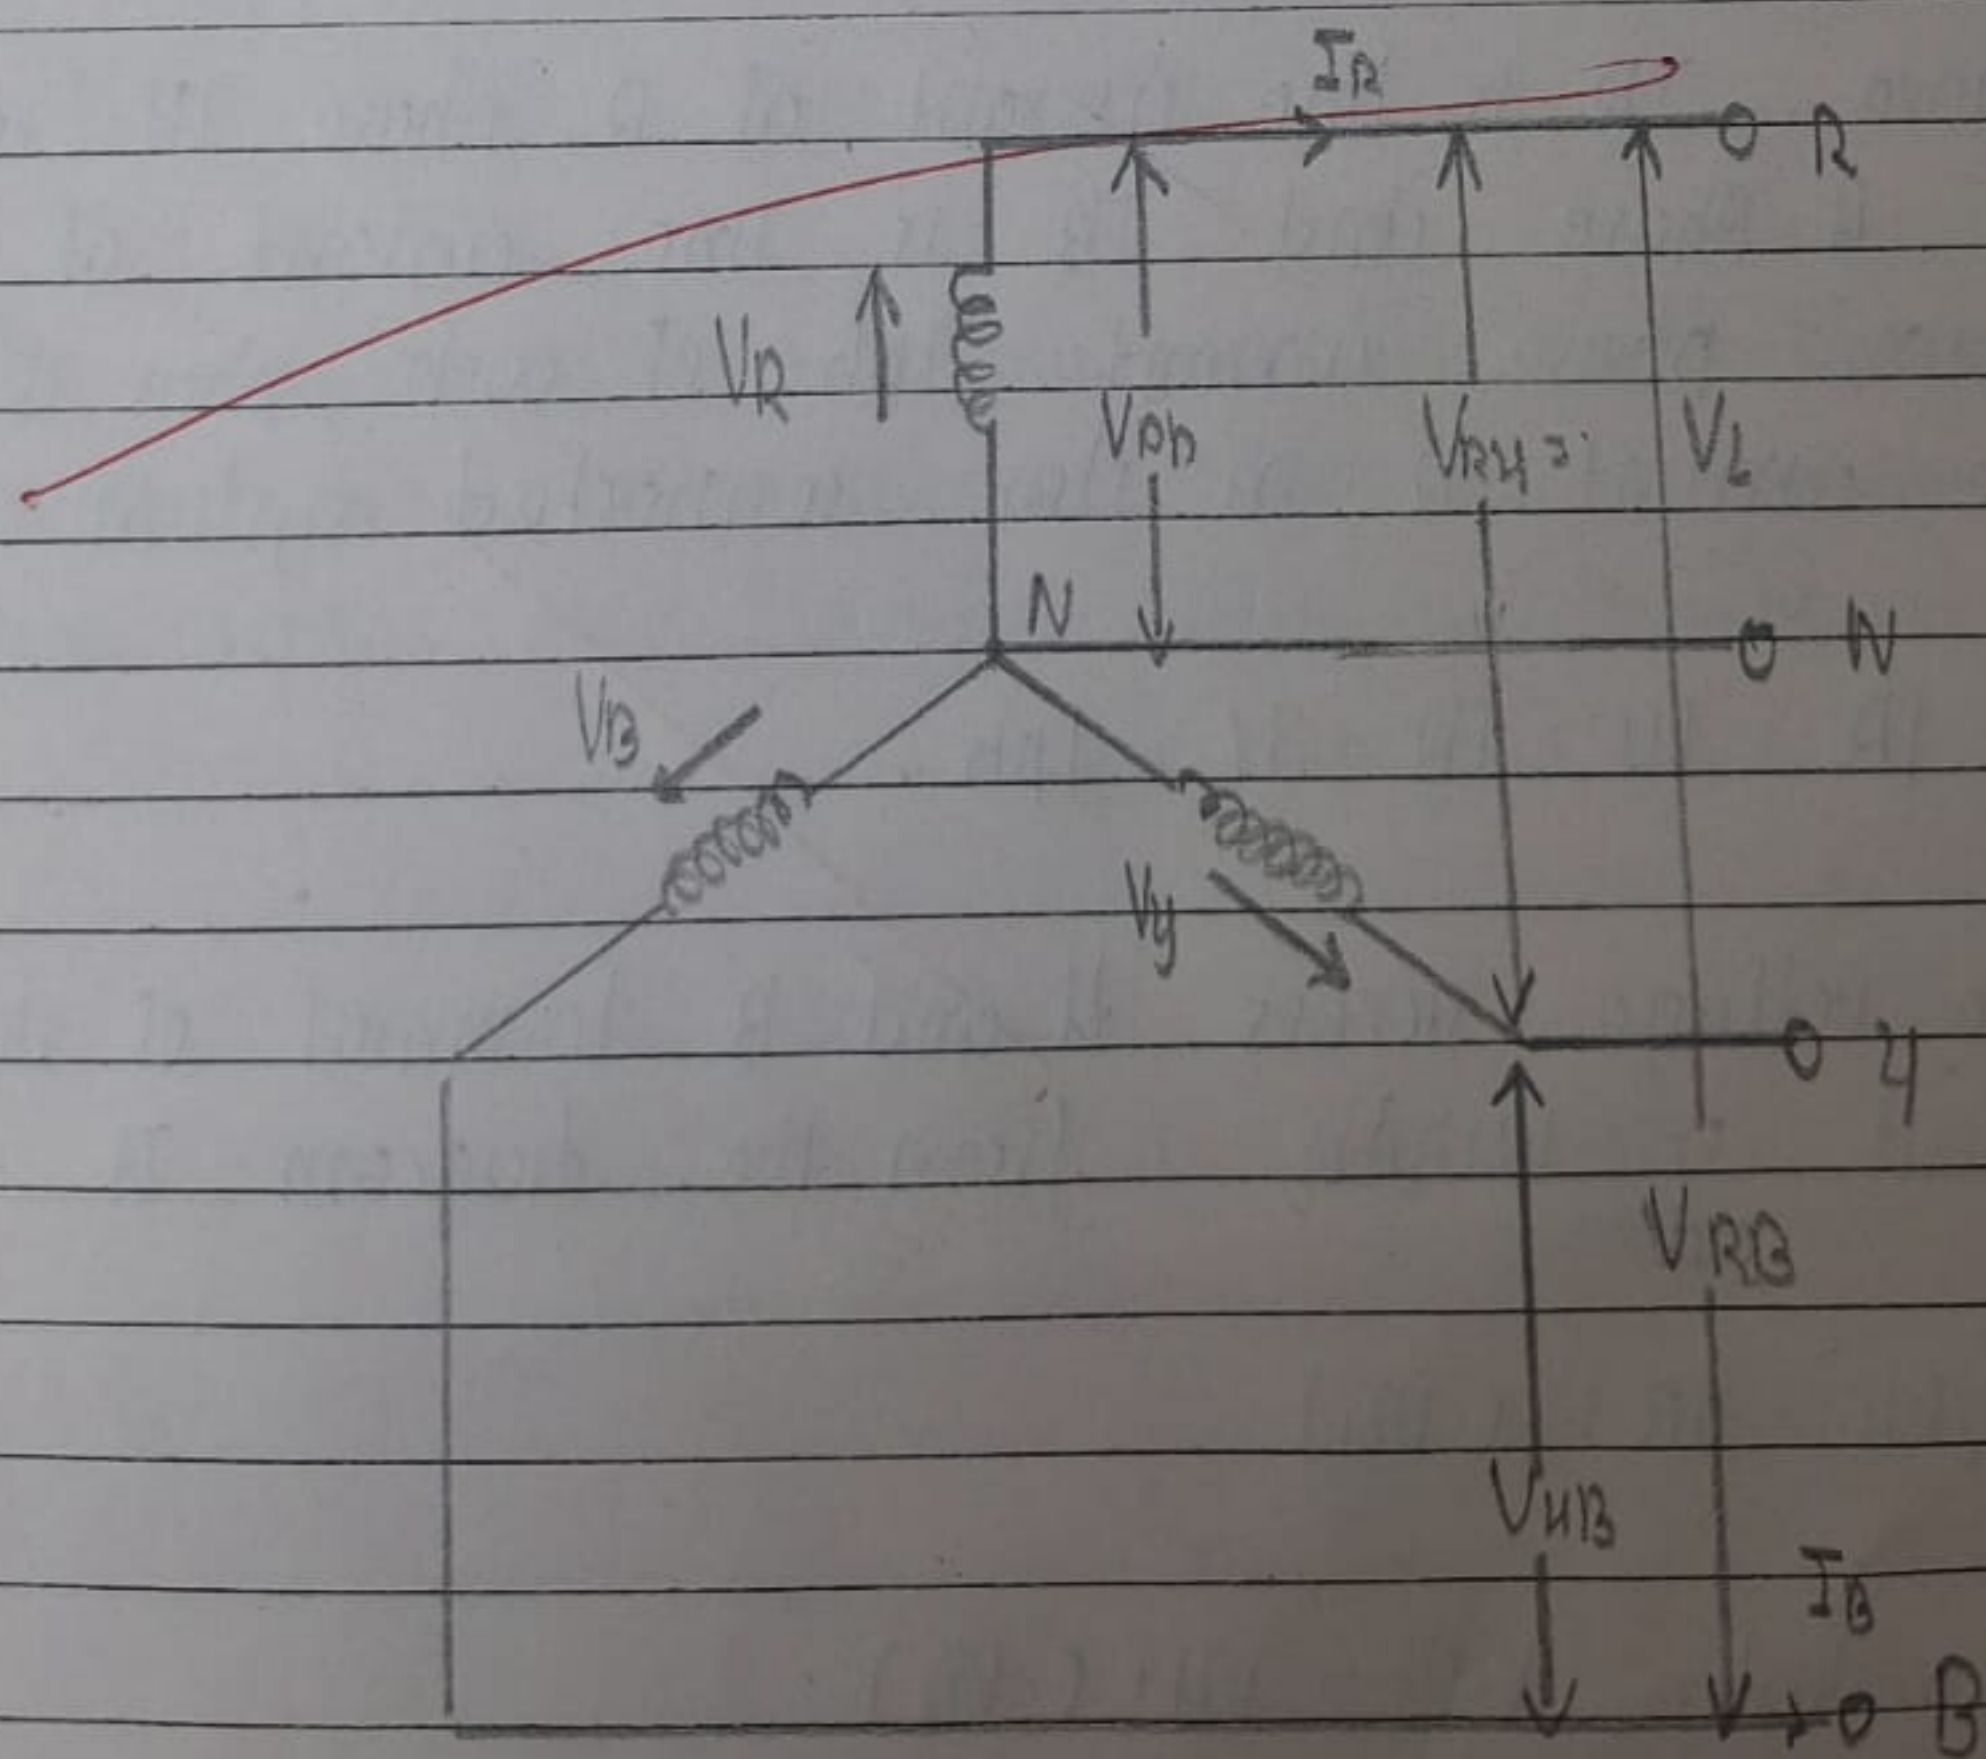 IR
R
VR
Vph
VRy =
VL
N
N
VB
Vy
y
VRB
VyB
IB
B